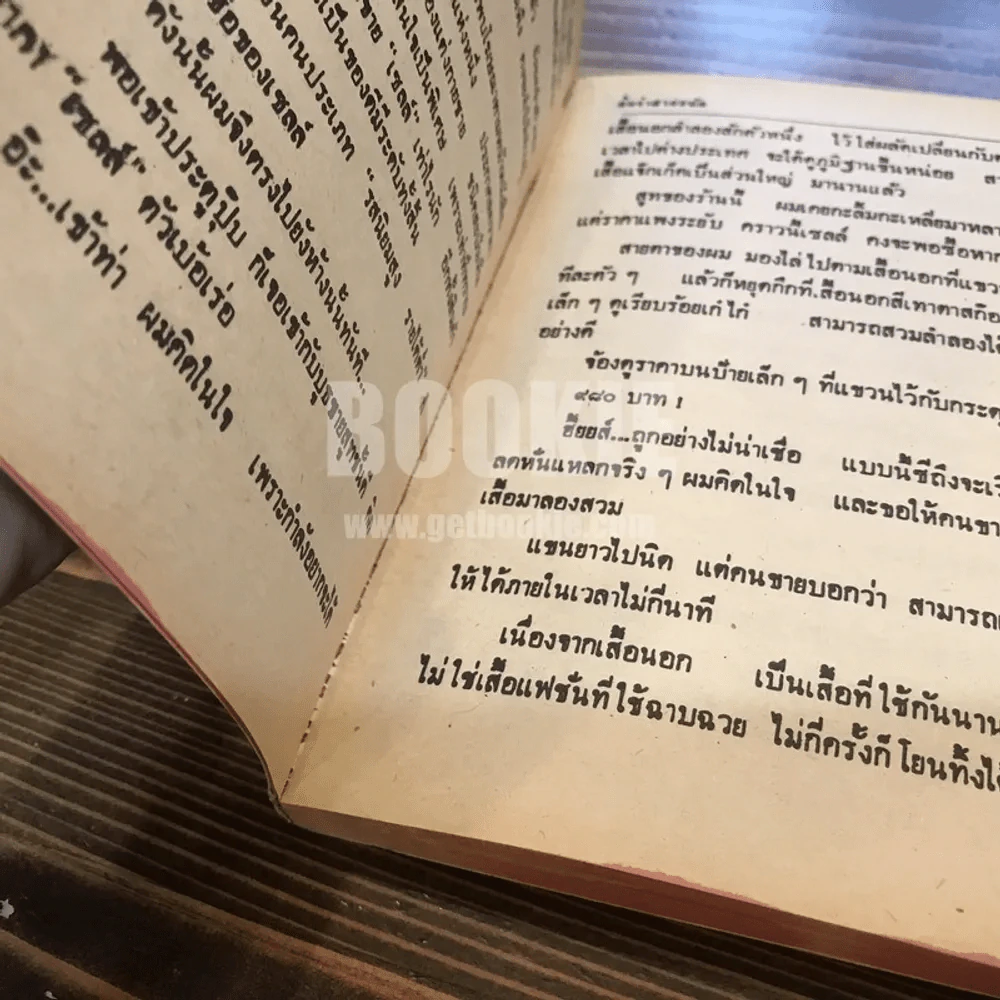 พบไ
แห่งหนึ่ง
สนใจเป็นพิเศษ
องแต่งกายชาย
ขาย “เซลล์” เท่าไรนัก
เป็นของดีมีระดับทั้งสิ้น
นคนประเภท “รสนิยมสูง รายได้ต่ำ
ชื่อของเซลล์
ดังนั้นผมจึงตรงไปยังห้างนั้นทันที...
พอเข้าประตูปุ๊บ ก็เจอเข้ากับบูธขายสูทชั้นดี
“เซลล์” ตัวเบ้อเร่อ
อ๊ะ...เข้าท่า ผมคิดในใจ เพราะกำลังอยากจะได้
เสื้อนอกลำลองสักตัวหนึ่ง ไว้ใส่ผลัดเปลี่ยนกับ
เวลาไปต่างประเทศ จะได้ดูภูมิฐานขึ้นหน่อย
เสื้อแจ๊กเก็ตเป็นส่วนใหญ่ มานานแล้ว
สูทของร้านนี้ ผมเคยกะลิ้มกะเหลี่ยมาหลา
แต่ราคาแพงระยับ คราวนี้เซลล์ คงจะพอซื้อหา
สายตาของผม มองไล่ไปตามเสื้อนอกที่แขว
ทีละตัว ๆ แล้วก็หยุดกึกที่เสื้อนอกสีเทาตาสก๊อ
เล็ก ๆ ดูเรียบร้อยเก๋ไก๋ สามารถสวมลำลองได้
อย่างดี
จ้องดูราคาบนป้ายเล็ก ๆ ที่แขวนไว้กับกระดุ
๙๘๐ บาท !
ฮี้ยยส์...ถูกอย่างไม่น่าเชื่อ แบบนี้ซีถึงจะเรี
ลดหั่นแหลกจริง ๆ ผมคิดในใจ และขอให้คนขา
เสื้อมาลองสวม
แขนยาวไปนิด แต่คนขายบอกว่า สามารถ
ให้ได้ภายในเวลาไม่กี่นาที
เนื่องจากเสื้อนอก เป็นเสื้อที่ใช้กันนาน
ไม่ใช่เสื้อแฟชั่นที่ใช้ฉาบฉวย ไม่กี่ครั้งก็โยนทิ้งได้
BOOKIE
www.getbookie.com